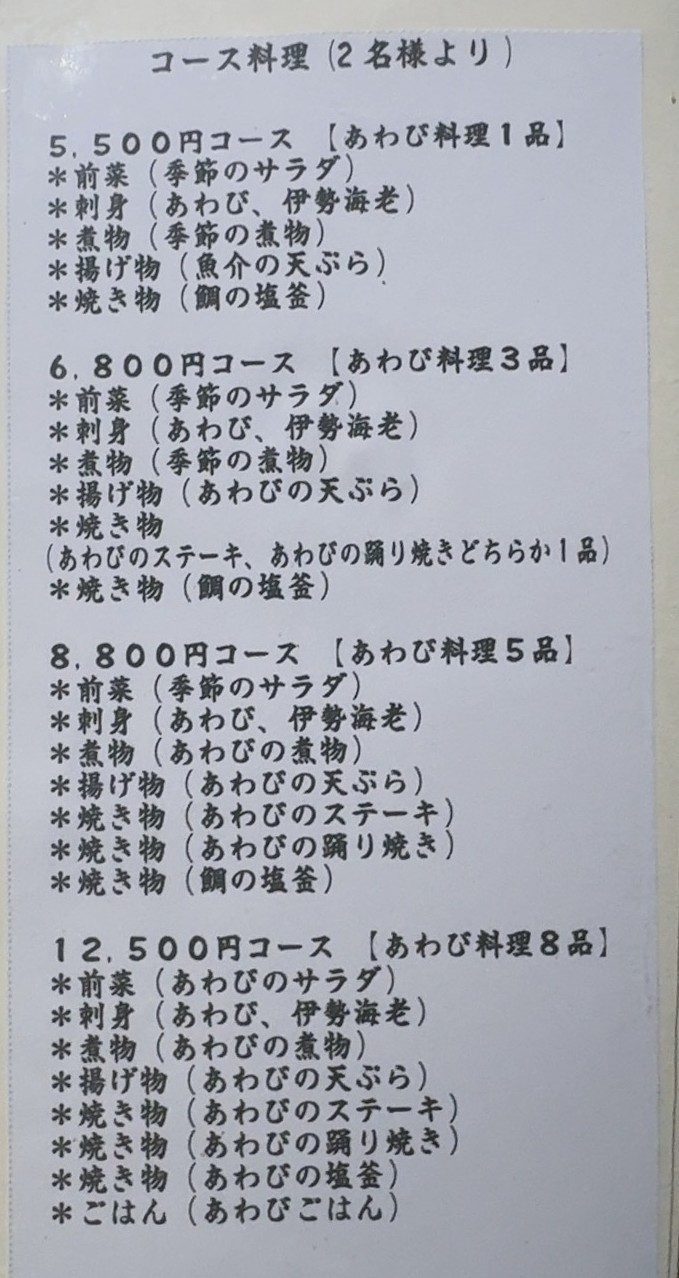 コース料理(2名様より)
5,500円コース 【あわび料理1品】
*前菜(季節のサラダ)
*刺身(あわび、伊勢海老)
*煮物(季節の煮物)
*揚げ物(魚介の天ぷら)
*焼き物(鯛の塩釜)
6,800円コース 【あわび料理3品】
*前菜(季節のサラダ)
*刺身(あわび、伊勢海老)
*煮物(季節の煮物)
*揚げ物(あわびの天ぷら)
*焼き物
(あわびのステーキ、あわびの踊り焼きどちらか1品)
*焼き物(鯛の塩釜)
8,800円コース 【あわび料理5品】
*前菜(季節のサラダ)
*刺身(あわび、伊勢海老)
*煮物(あわびの煮物)
*揚げ物(あわびの天ぷら)
*焼き物(あわびのステーキ)
*焼き物(あわびの踊り焼き)
*焼き物(鯛の塩釜)
12,500円コース 【あわび料理8品】
*前菜(あわびのサラダ)
*刺身(あわび、伊勢海老)
*煮物(あわびの煮物)
*揚げ物(あわびの天ぷら)
*焼き物(あわびのステーキ)
*焼き物(あわびの踊り焼き)
*焼き物(あわびの塩釜)
*ごはん(あわびごはん)